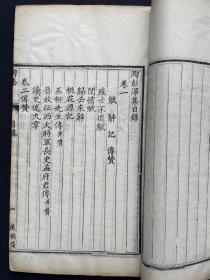 陶彭澤集目錄
卷一
賦 辭 記 傳贊
感士不遇賦
閑情賦
歸去來辭
桃花源記
五柳先生傳并贊
晉故征西大將軍長史孟府君傳并贊
讀史述九章
卷二傳贊